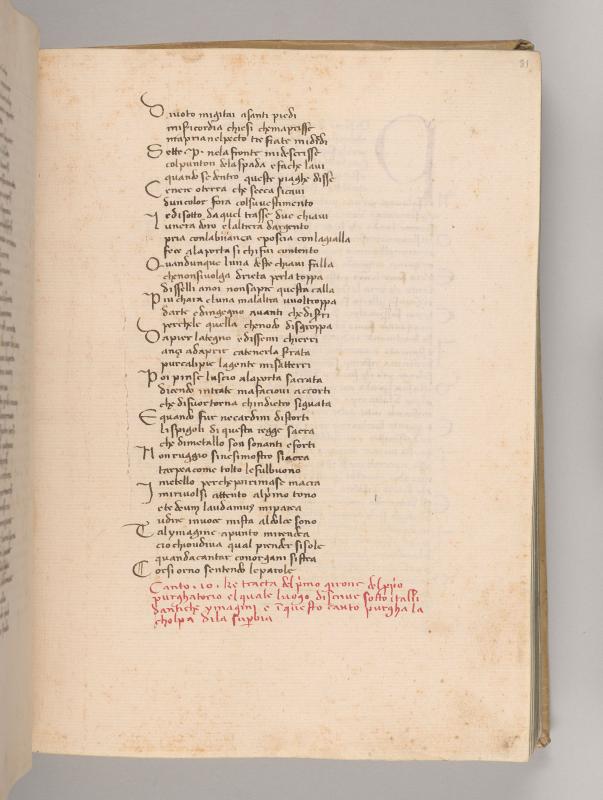 81
Divoto migitai asanti piedi
misericordia chiesi chemaprisse
ma pria nelpecto tre fiate midiedi
Sette .P. nela fronte midescrisse
col punton dela spada e fa che lavi
quando se dentro queste piaghe disse
Cenere oterra che secca sicavi
dun color fora col suvestimento
I e disotto daquel trasse due chiavi
luna era doro elaltra dargento
pria conlabianca eposcia conlagialla
fece alaporta sichifui contento
Quandunque luna deste chiavi falla
che nonsivolga drieta perla toppa
disselli anoi nonsapre questa calla
Piu chara eluna malaltra vuoltroppa
darte e dingegno avanti che diserri
perchele quella chenodo disgroppa
Da pier lategno e dissemi chierri
anzi adaprir catenerla serata
purcalipie lagente misatterri
Poi pinse luscio alaporta sacrata
dicendo intrate mafaciovi accorti
che difuor torna chindietro siguata
E quando fur necardini distorti
li spigoli di questa regge sacra
che dimetallo son sonanti eforti
Non ruggio sinesimostro siacra
tarpea come tolto lefulbuono
metello perche poi rimase macra
I mirivolsi attento alprimo tono
e te deum laudamus miparea
udire invoce mista aldolce suono
Tal ymagine apunto mirendea
cio chioudiva qual prender sisole
quando acantar conorgani sistea
Cor si orno sentendo leparole
Canto .10. ke tracta del primo girone del prio
purghatorio el quale luogo discrive sotto italli
dantiche ymagini e in questo canto purgha la
cholpa dila superbia